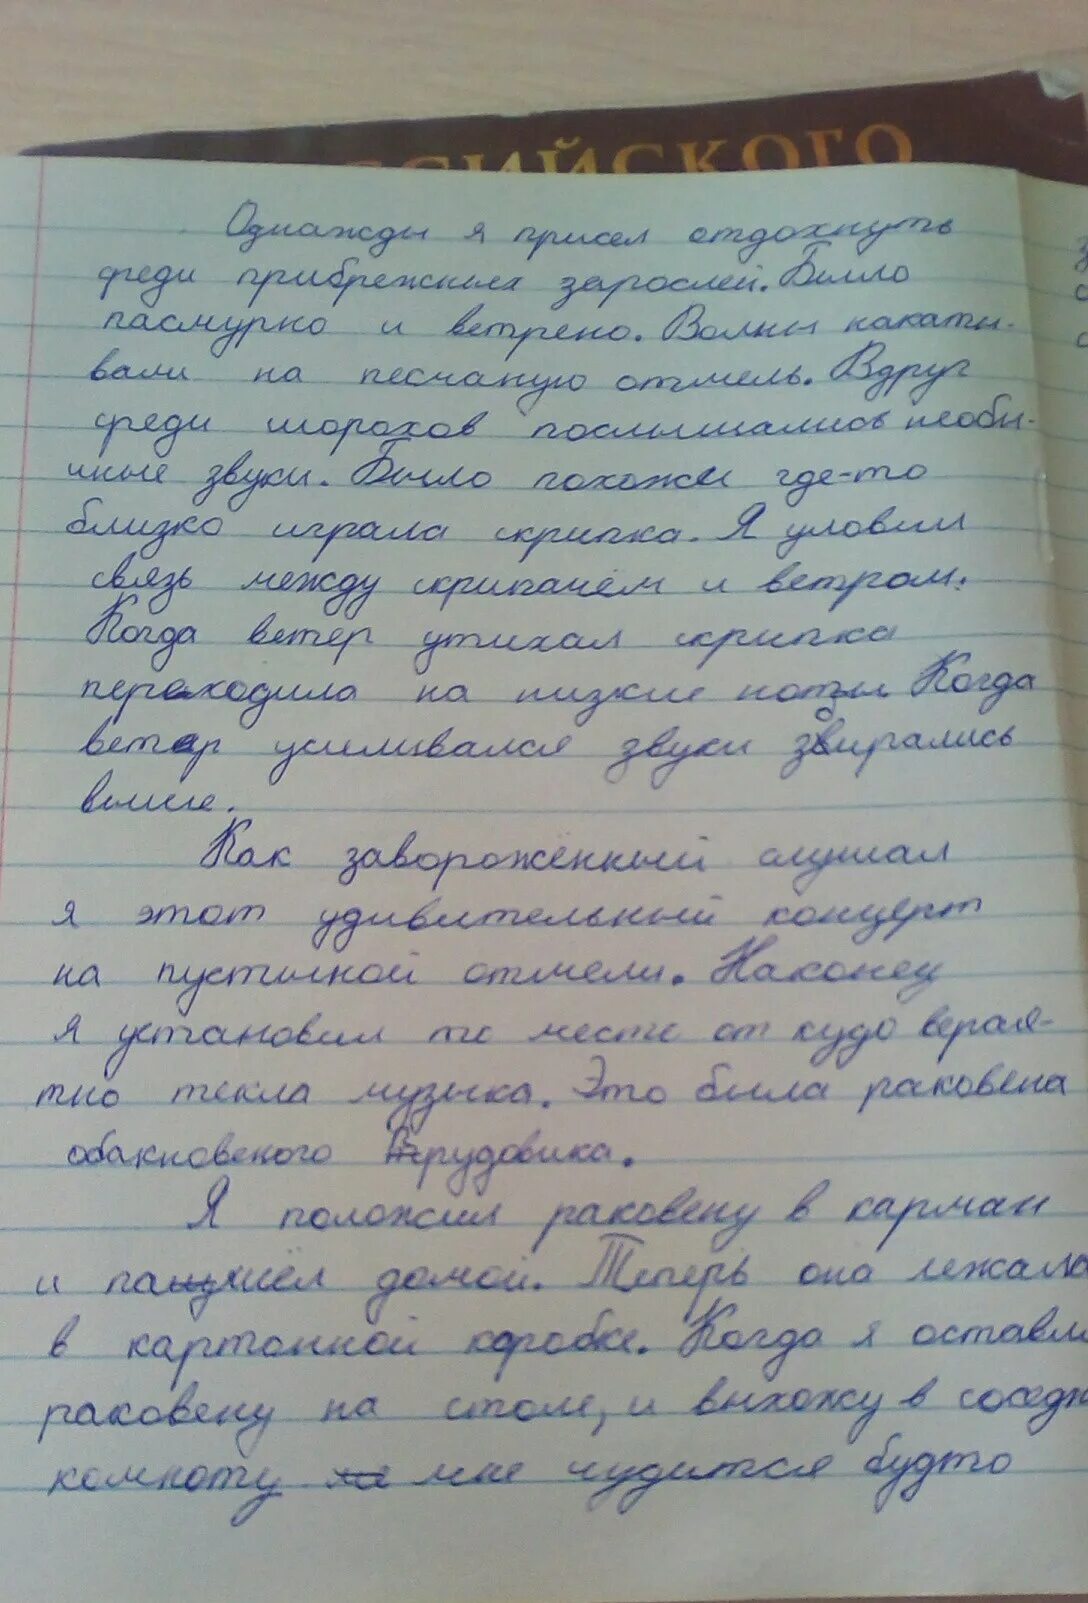 ССИЙСКОГО
Однажды я присел отдохнуть
среди прибрежных зарослей. Было
пасмурно и ветрено. Волны накаты-
вали на песчаную отмель. Вдруг
среди шорохов послышались необы-
чные звуки. Было похоже где-то
близко играла скрипка. Я уловил
связь между скрипачём и ветром.
Когда ветер утихал скрипка
переходила на низкие ноты. Когда
ветер усиливался звуки збирались
выше.
Как заворожённый слушал
я этот удивительный концерт
на пустыной отмели. Наконец
я установил то место от кудо вероя-
тно текла музыка. Это была раковена
обакновеного трудовика.
Я положил раковену в карман
и пашёл домой. Теперь она лежала
в картонной коробке. Когда я оставл
раковену на столе, и выхожу в соседн
комноту мне чудится будто